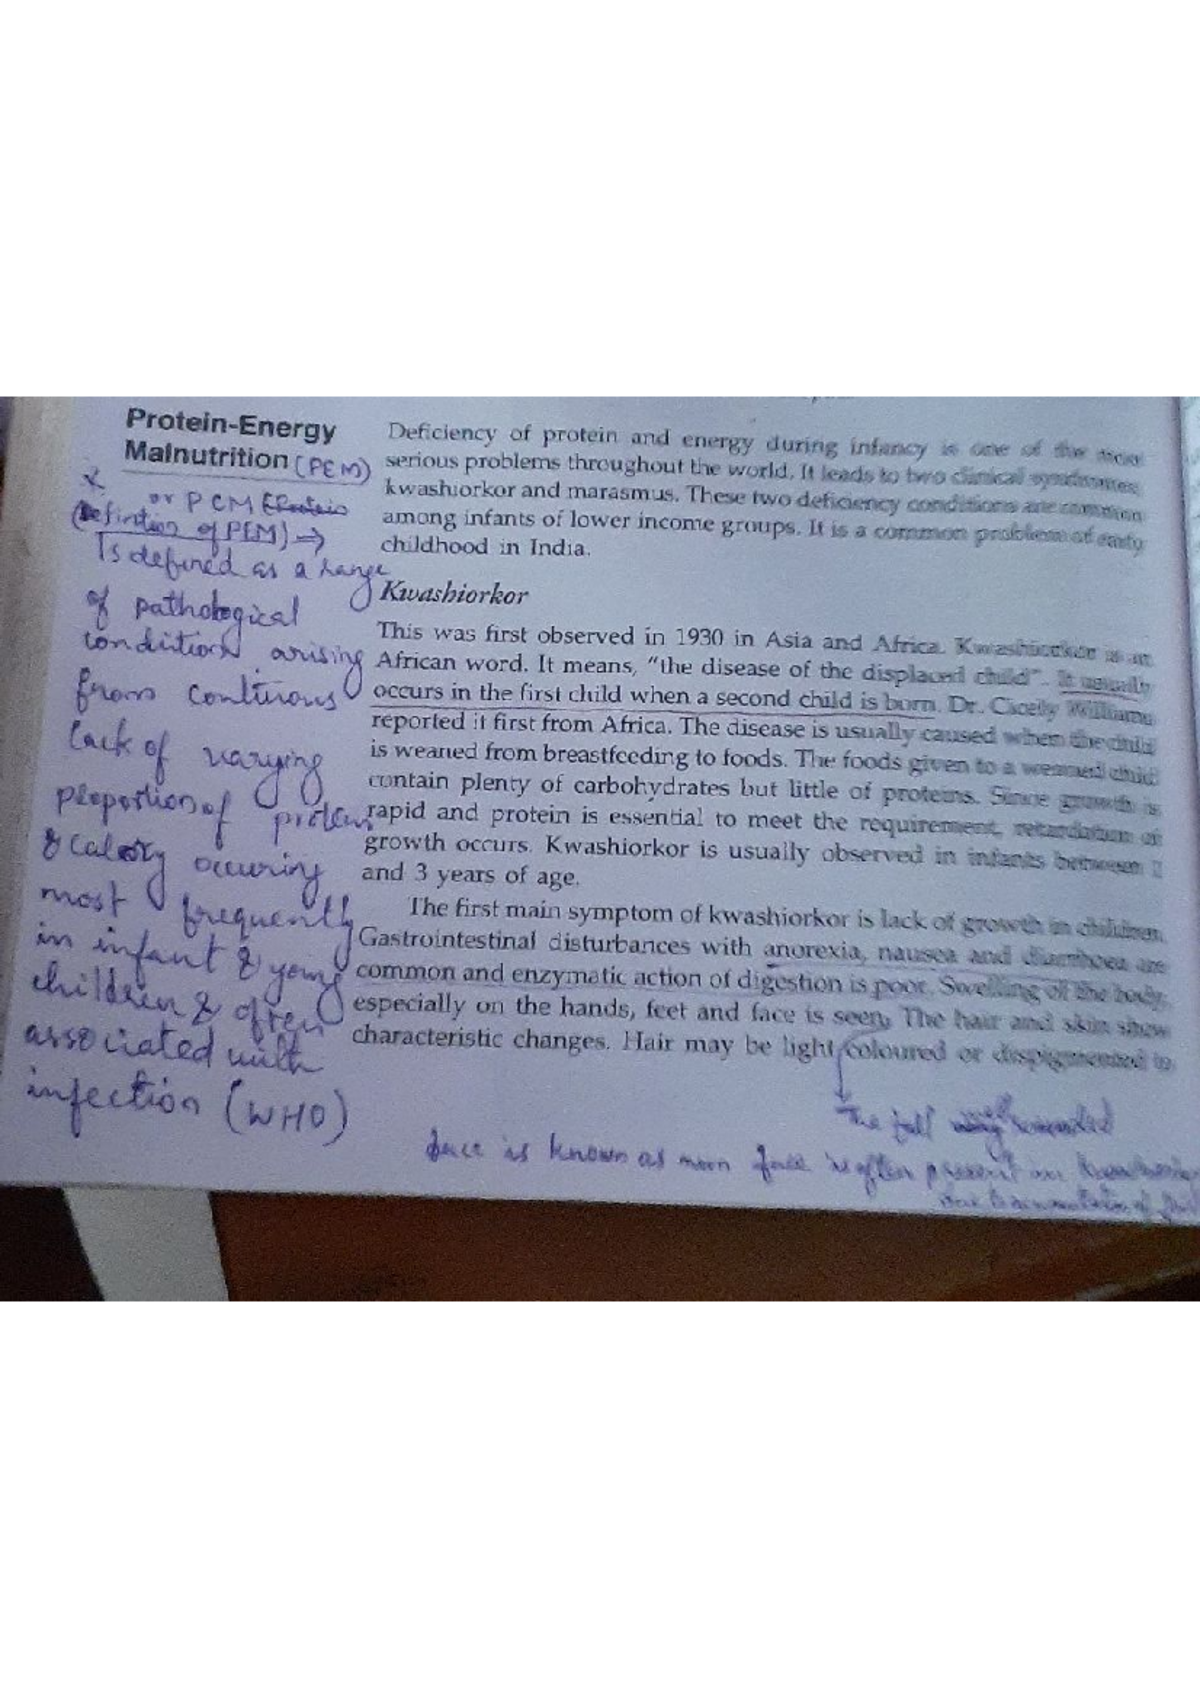 Protein-Energy
Malnutrition (PEM)
or PCM
(Definition of PEM) ⇒
Is defined as a range
of pathological
condition arising
from
lack of varying
proportion of protein
& calory occuring
most frequently
in infant & young
children & often
associated with
infection (WHO)
Deficiency of protein and energy during infancy is one of the most
serious problems throughout the world. It leads to two clinical syndromes,
kwashiorkor and marasmus. These two deficiency conditions are common
among infants of lower income groups. It is a common problem of early
childhood in India.
Kwashiorkor
This was first observed in 1930 in Asia and Africa. Kwashiorkor is an
African word. It means, "the disease of the displaced child". It usually
occurs in the first child when a second child is born. Dr. Cicely Williams
reported it first from Africa. The disease is usually caused when the child
is weaned from breastfeeding to foods. The foods given to a weaned child
contain plenty of carbohydrates but little of proteins. Since growth is
rapid and protein is essential to meet the requirement, retardation of
growth occurs. Kwashiorkor is usually observed in infants between 1
and 3 years of age.
The first main symptom of kwashiorkor is lack of growth in children.
Gastrointestinal disturbances with anorexia, nausea and diarrhoea are
common and enzymatic action of digestion is poor. Swelling of the body,
especially on the hands, feet and face is seen. The hair and skin show
characteristic changes. Hair may be light coloured or dispigmented in
The full
face is known as moon face is often present in